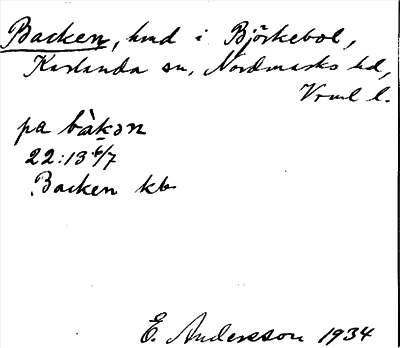 Backen, hmd i Björkebol,
Karlanda sn, Nordmarks hd,
Vrml l.
pa bàkən
22:13 6/7
Backen kb
E. Andersson 1934